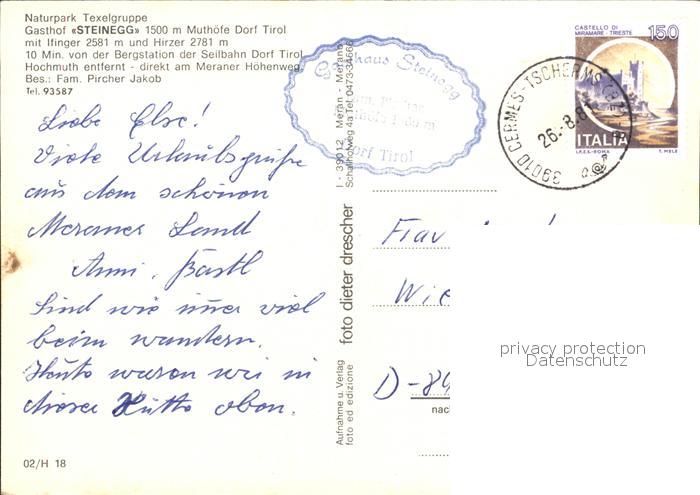 Naturpark Texelgruppe
Gasthof «STEINEGG» 1500 m Muthöfe Dorf Tirol
mit Ifinger 2581 m und Hirzer 2781 m
10 Min. von der Bergstation der Seilbahn Dorf Tirol
Hochmuth entfernt - direkt am Meraner Höhenweg.
Bes.: Fam. Pircher Jakob
Tel. 93587
Liebe Else!
Viele Urlaubsgrüße
aus dem schönen
Meraner Land
Anni, Bartl
Sind wie immer viel
beim wandern.
Heute waren wir in
dieser Hütte oben.
02/H 18
Gasthaus Steinegg
Dorf Tirol
I - 39012 Meran - Merano
Schallhofweg 4a Tel. 0473-34666
foto dieter drescher
Aufnahme u. Verlag
foto ed edizione
39010 CERMES-TSCHERMS (BZ)
26.-8.8
CASTELLO DI
MIRAMARE - TRIESTE
150
ITALIA
I.P.Z.S.-ROMA
T. MELE
Frau
Wie
D-89
nac
privacy protection
Datenschutz